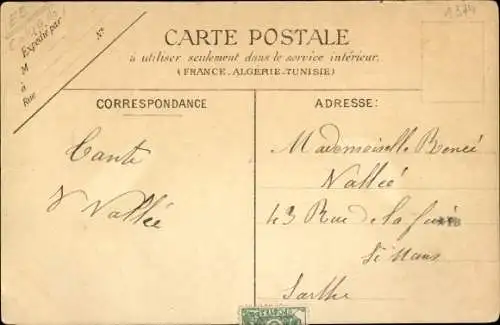 1374
Expédié par
M
N°
à
Rue
CARTE POSTALE
à utiliser seulement dans le service intérieur.
(FRANCE-ALGERIE-TUNISIE)
CORRESPONDANCE
ADRESSE:
Tante
V Vallée
Mademoiselle Renée
Vallée
43 Rue de la
Le Mans
Sarthe